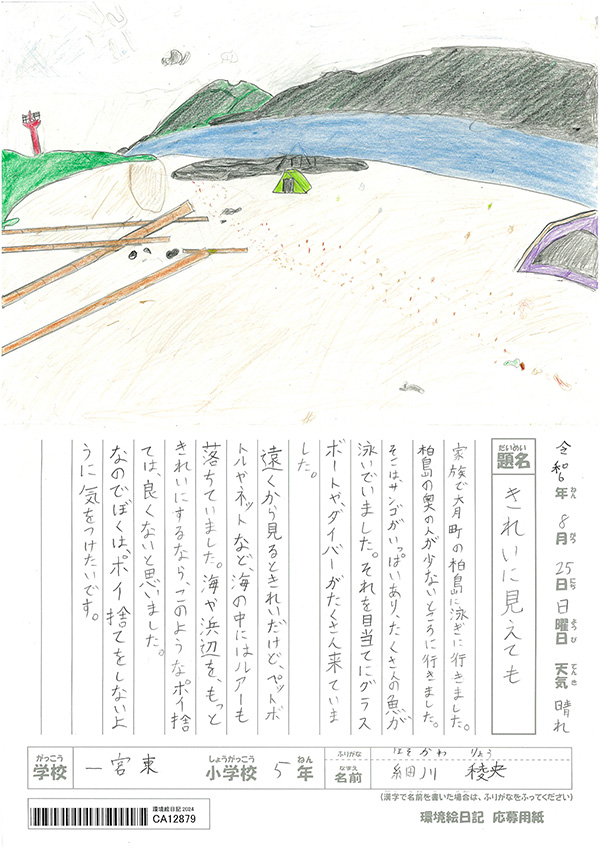 令和6年 8月 25日 日曜日 天気 晴れ
ねん がつ にち ようび てんき
だいめい
題名
きれいに見えても
家族で大月町の柏島に泳ぎに行きました。
柏島の奥の人が少ないところに行きました。
そこは、サンゴがいっぱいあり、たくさんの魚が
泳いでいました。それを目当てにグラス
ボートや、ダイバーがたくさん来ていま
した。
遠くから見るときれいだけど、ペットボ
トルやネットなど、海の中にはルアーも
落ちていました。海や浜辺を、もっと
きれいにするなら、このようなポイ捨
ては、良くないと思いました。
なのでぼくは、ポイ捨てをしないよ
うに気をつけたいです。
がっこう しょうがっこう ねん
学校 一宮東 小学校 5年
ふりがな ほそかわ りょう
なまえ
名前 細川 稜央
(漢字で名前を書いた場合は、ふりがなをふってください)
環境絵日記2024
CA12879
環境絵日記 応募用紙